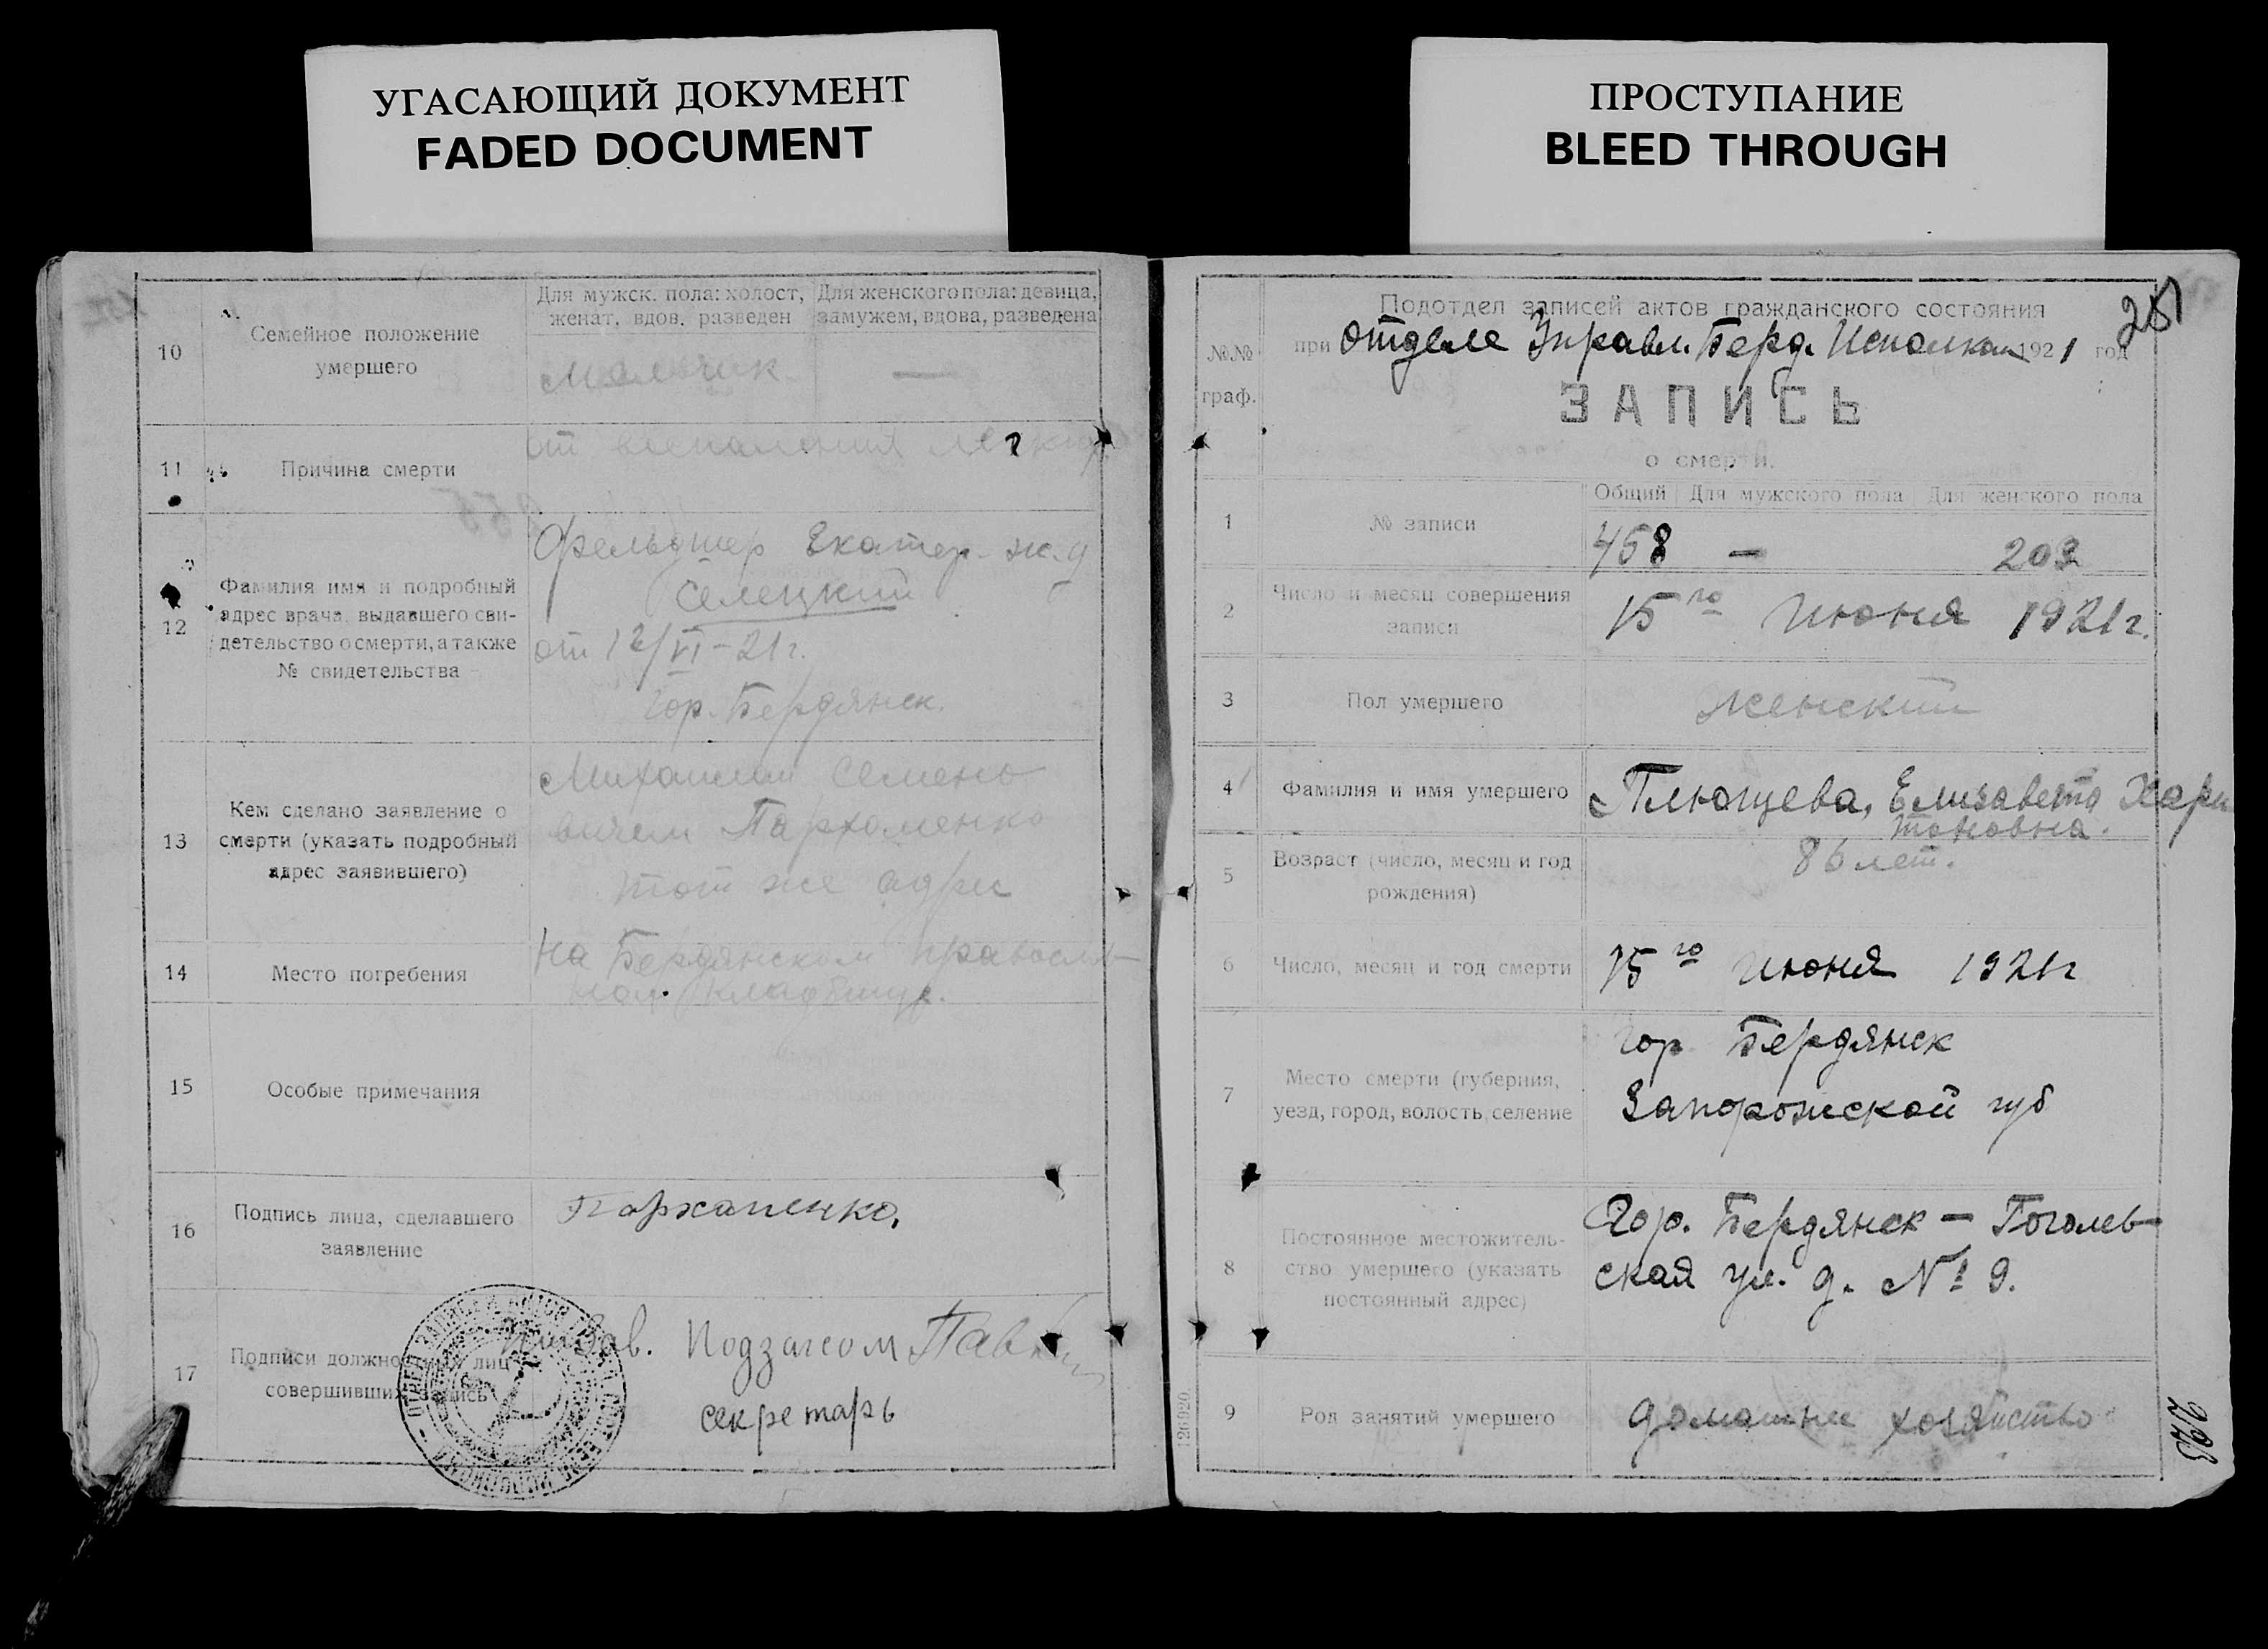 УГАСАЮЩИЙ ДОКУМЕНТ
FADED DOCUMENT
10
Семейное положение
умершего
Для мужск. пола: холост,
женат, вдов, разведен
Для женского пола: девица,
замужем, вдова, разведена
мальчик
—
11
Причина смерти
от воспаления легких
12
Фамилия имя и подробный
адрес врача, выдавшего сви-
детельство о смерти, а также
№ свидетельства
Фельдшер Екатер. ж. д
Селецкий
от 12/VI-21 г.
Гор. Бердянск.
13
Кем сделано заявление о
смерти (указать подробный
адрес заявившего)
Михаилом Семено
вичем Пархоменко
тот же адрес
14
Место погребения
На Бердянском православ-
ном кладбище.
15
Особые примечания
16
Подпись лица, сделавшего
заявление
Пархоменко.
17
Подписи должностных лиц
совершивших запись
Зав. Подзагсом
секретарь
ПРОСТУПАНИЕ
BLEED THROUGH
№№
граф.
Подотдел записей актов гражданского состояния
при отделе Управл. Берд. Исполкома 1921 год
ЗАПИСЬ
о смерти.
1
№ записи
Общий Для мужского пола Для женского пола
458 — 203
2
Число и месяц совершения
записи
15го Июня 1921 г.
3
Пол умершего
женский
4
Фамилия и имя умершего
Плющева, Елизавета Хари
тоновна.
5
Возраст (число, месяц и год
рождения)
86 лет.
6
Число, месяц и год смерти
15го Июня 1921 г
7
Место смерти (губерния,
уезд, город, волость, селение
Гор Бердянск
Запорожской губ
8
Постоянное местожитель-
ство умершего (указать
постоянный адрес)
Гор. Бердянск — Гоголев-
ская ул. д. № 9.
9
Род занятий умершего
домашнее хозяйство
126920.